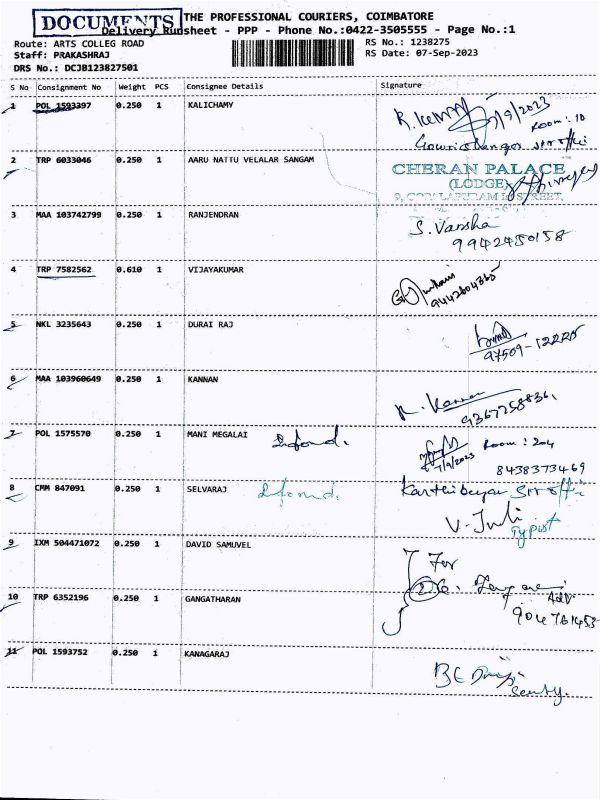 DOCUMENTS
THE PROFESSIONAL COURIERS, COIMBATORE
Delivery Runsheet - PPP - Phone No.:0422-3505555 - Page No.:1
Route: ARTS COLLEG ROAD
RS No.: 1238275
Staff: PRAKASHRAJ
RS Date: 07-Sep-2023
DRS No.: DCJB123827501
S No Consignment No Weight PCS Consignee Details Signature
1 POL 1593397 0.250 1 KALICHAMY
7/9/2023
Room: 10
2 TRP 6033046 0.250 1 AARU NATTU VELALAR SANGAM
CHERAN PALACE
(LODGE)
STREET,
3 MAA 103742799 0.250 1 RANJENDRAN
S. Varsha
9942450158
4 TRP 7582562 0.610 1 VIJAYAKUMAR
9442604365
5 NKL 3235643 0.250 1 DURAI RAJ
97509-12225
6 MAA 103960649 0.250 1 KANNAN
K. Kannan
9367258836
7 POL 1575570 0.250 1 MANI MEGALAI
7/9/2023 Room: 204
8438373469
8 CMM 847091 0.250 1 SELVARAJ
Typist
9 IXM 504471072 0.250 1 DAVID SAMUVEL
For
10 TRP 6352196 0.250 1 GANGATHARAN
Adv
11 POL 1593752 0.250 1 KANAGARAJ